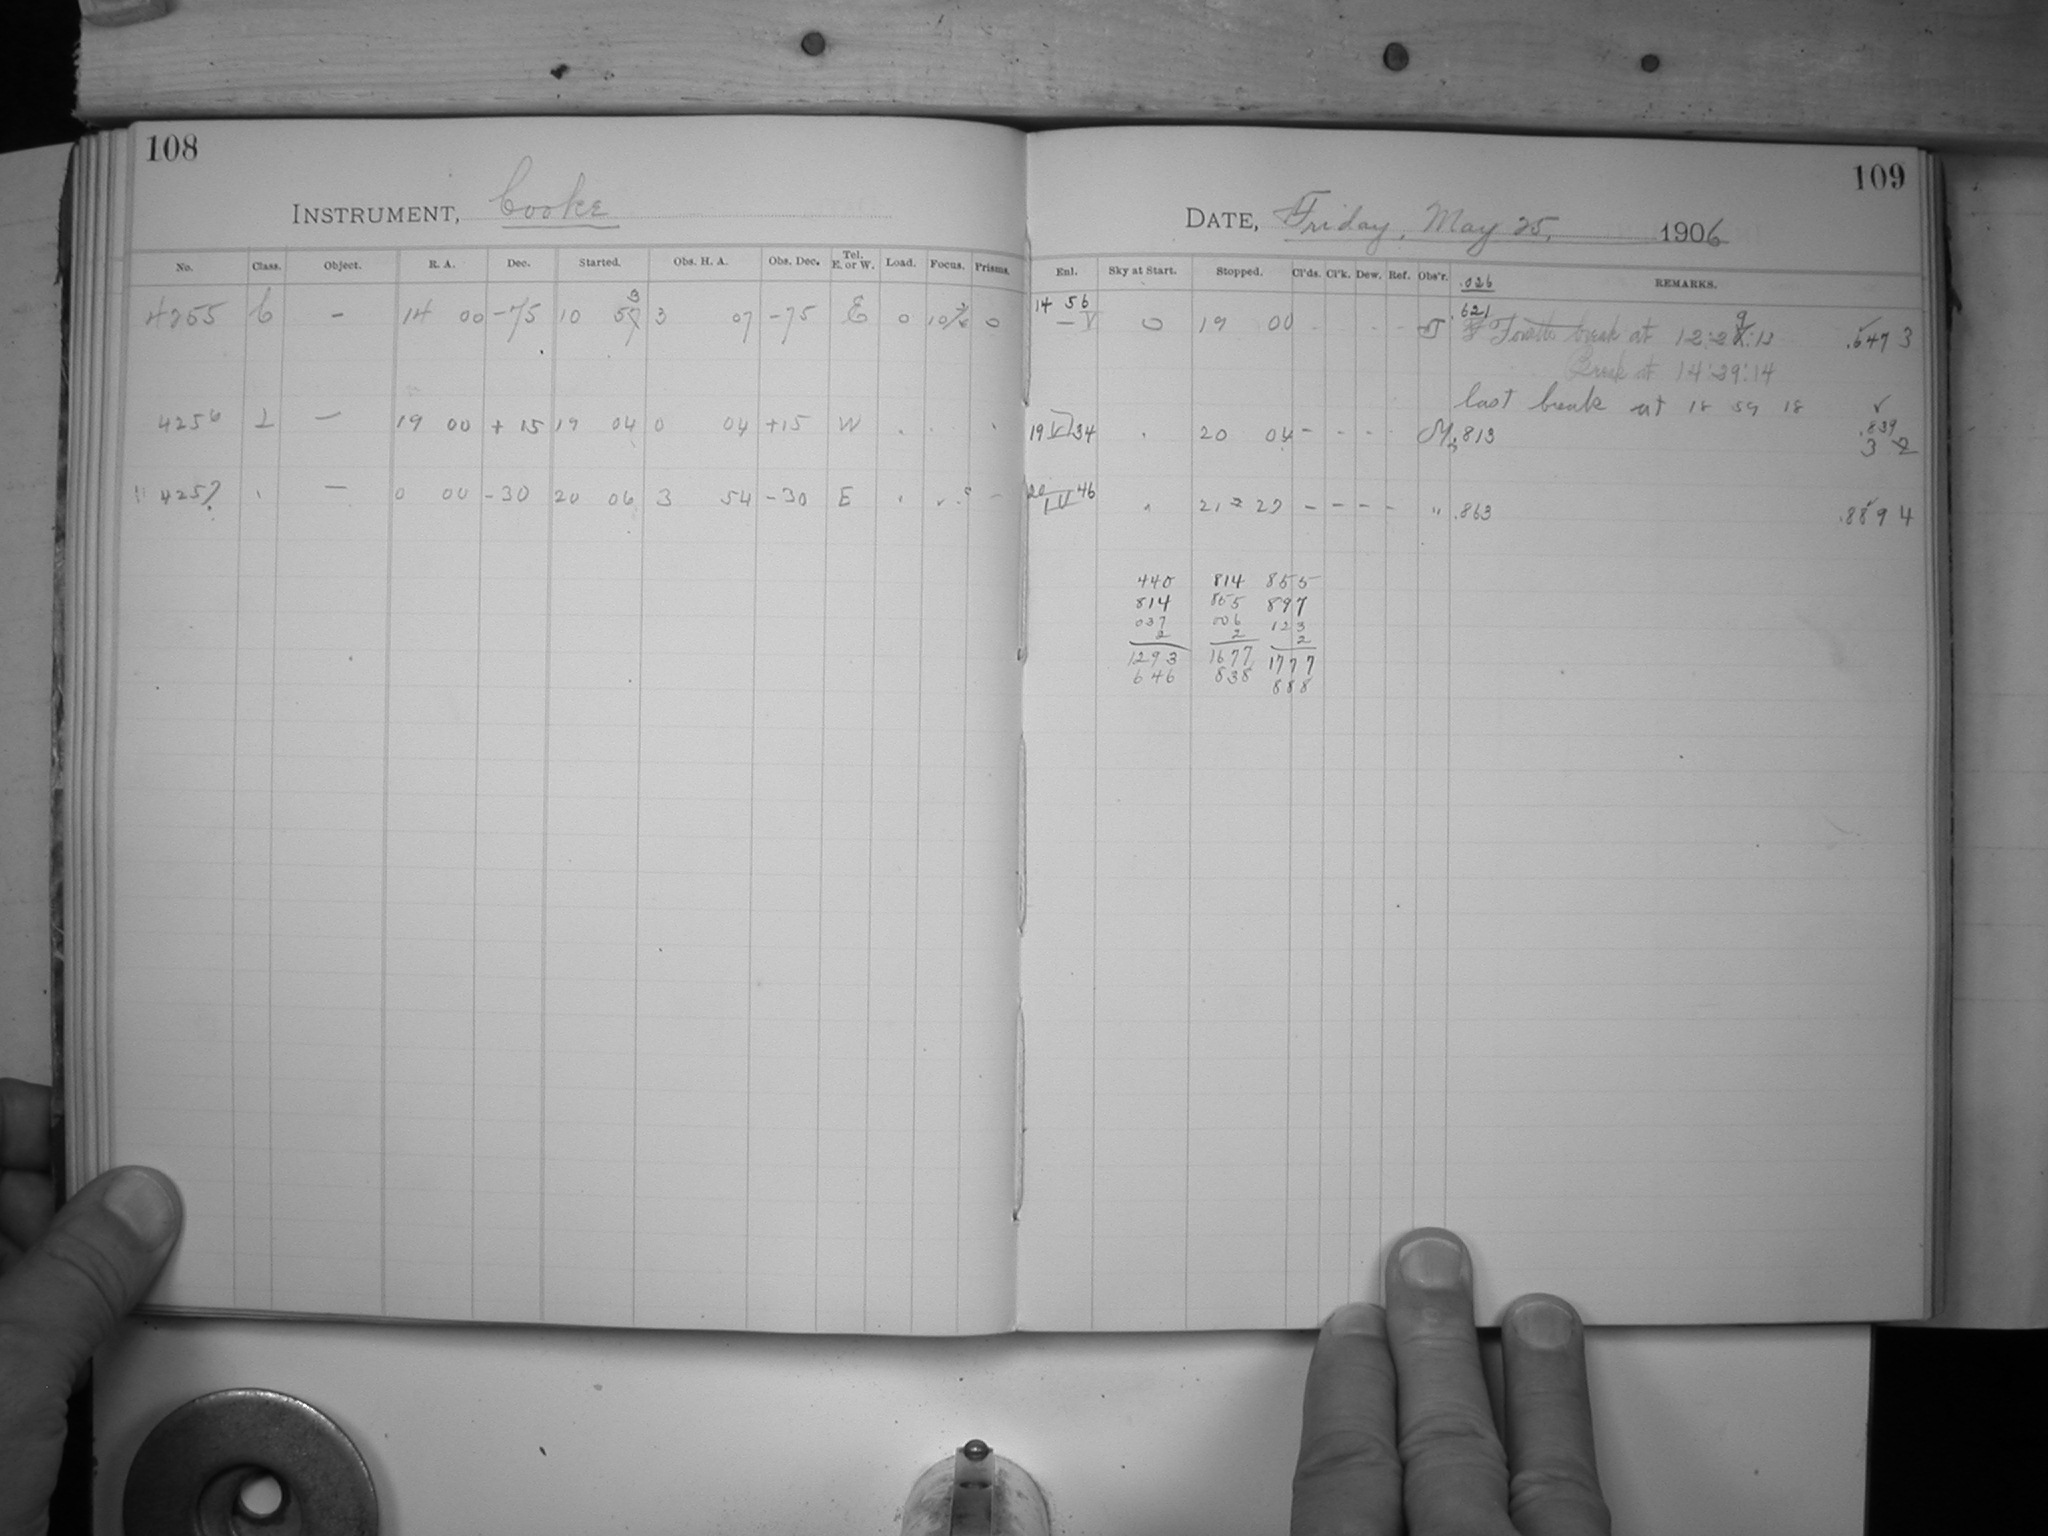 108
INSTRUMENT, Cooke
No. Class. Object. R. A. Dec. Started. Obs. H. A. Obs. Dec. Tel. E. or W. Load. Focus. Prisms.
4255 C - 14 00 -75 10 57 3 3 07 -75 E 0 10 0
4256 L - 19 00 + 15 19 04 0 04 +15 W
" 4257 - 0 00 -30 20 06 3 54 -30 E
109
DATE, Friday, May 25, 1906
Enl. Sky at Start. Stopped. Cl'ds. Cl'k. Dew. Ref. Obs'r. REMARKS.
.026
14 56 .621
- V 0 19 00 break at 12:28:13 9 .647 3
Break at 14:29:14
last break at 18 59 18
19 V 34 20 04 - - - - M .813 .839
3 2
20 46
IV 21 29 - - - - " .863 .889 4
440 814 855
814 855 897
037 006 123
2 2 2
1293 1677 1777
646 838 888